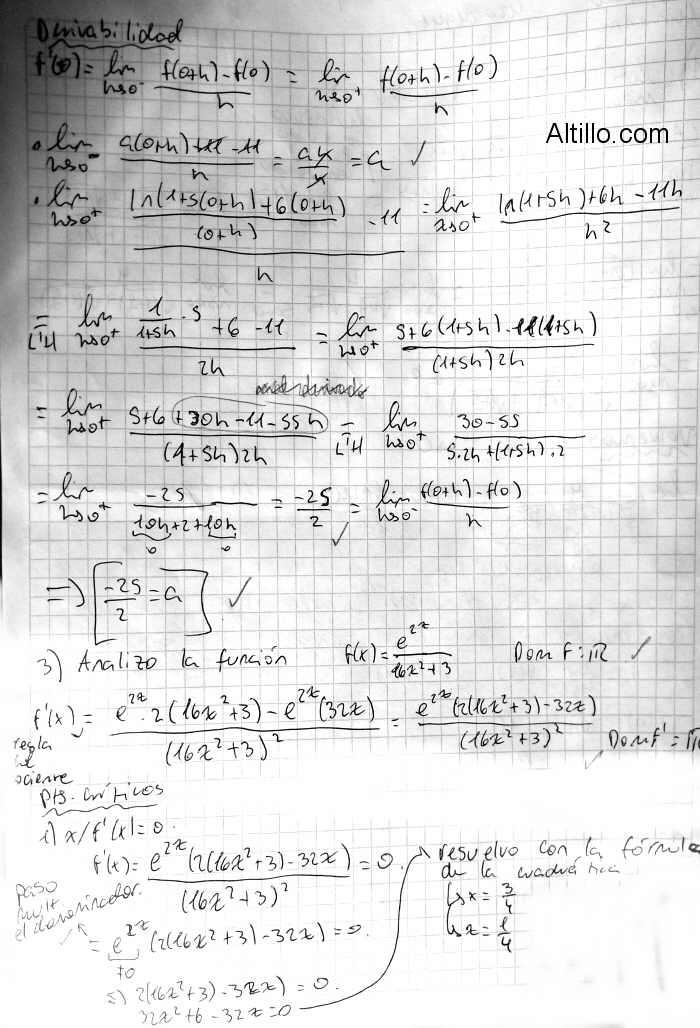 Derivabilidad
f'(0) = lim h→0⁻ (f(0+h) - f(0))/h = lim h→0⁺ (f(0+h) - f(0))/h
Altillo.com
• lim h→0⁻ (a(0+h) + 11 - 11)/h = ah/h = a ✓
• lim h→0⁺ ((ln(1+5(0+h)) + 6(0+h))/(0+h) - 11)/h = lim x→0⁺ (ln(1+5h) + 6h - 11h)/h²
= L'H lim h→0⁺ (1/(1+5h) · 5 + 6 - 11)/2h = lim h→0⁺ (5 + 6(1+5h) - 11(1+5h))/((1+5h)2h)
= lim h→0⁺ (5 + 6 + 30h - 11 - 55h)/((1+5h)2h) = L'H lim h→0⁺ (30 - 55)/(5·2h + (1+5h)·2)
= lim h→0⁺ -25/(10h + 2 + 10h) = -25/2 = lim h→0⁻ (f(0+h) - f(0))/h
0 0 ✓
=> [-25/2 = a] ✓
3) Analizo la función f(x) = e^(2x)/(16x²+3) Dom f: ℝ ✓
f'(x) = (e^(2x) · 2(16x²+3) - e^(2x)(32x))/(16x²+3)² = (e^(2x)(2(16x²+3) - 32x))/(16x²+3)²
regla
✓ Dom f' = ℝ
Pts. críticos
i) x/f'(x) = 0.
f'(x) = (e^(2x)(2(16x²+3) - 32x))/(16x²+3)² = 0.
paso
mult
el denominador.
= e^(2x) (2(16x²+3) - 32x) = 0.
≠0
2(16x²+3) - 32x) = 0.
32x² + 6 - 32x = 0
resuelvo con la fórmula
de la cuadrática
↳ x = 3/4
↳ x = 1/4